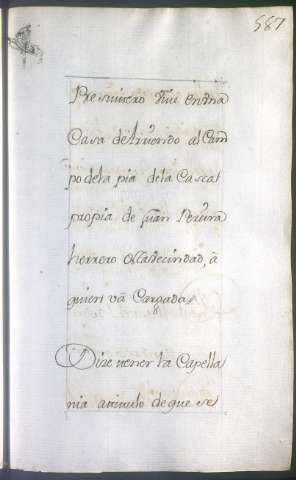 587
Presvitero vive en una
Casa de arriendo al Cam
po de la pia de la Casca
propia de Juan Pereira
herrero esta vecindad, a
quien va Cargada
Dize tener la Capella
nia a titulo de que se